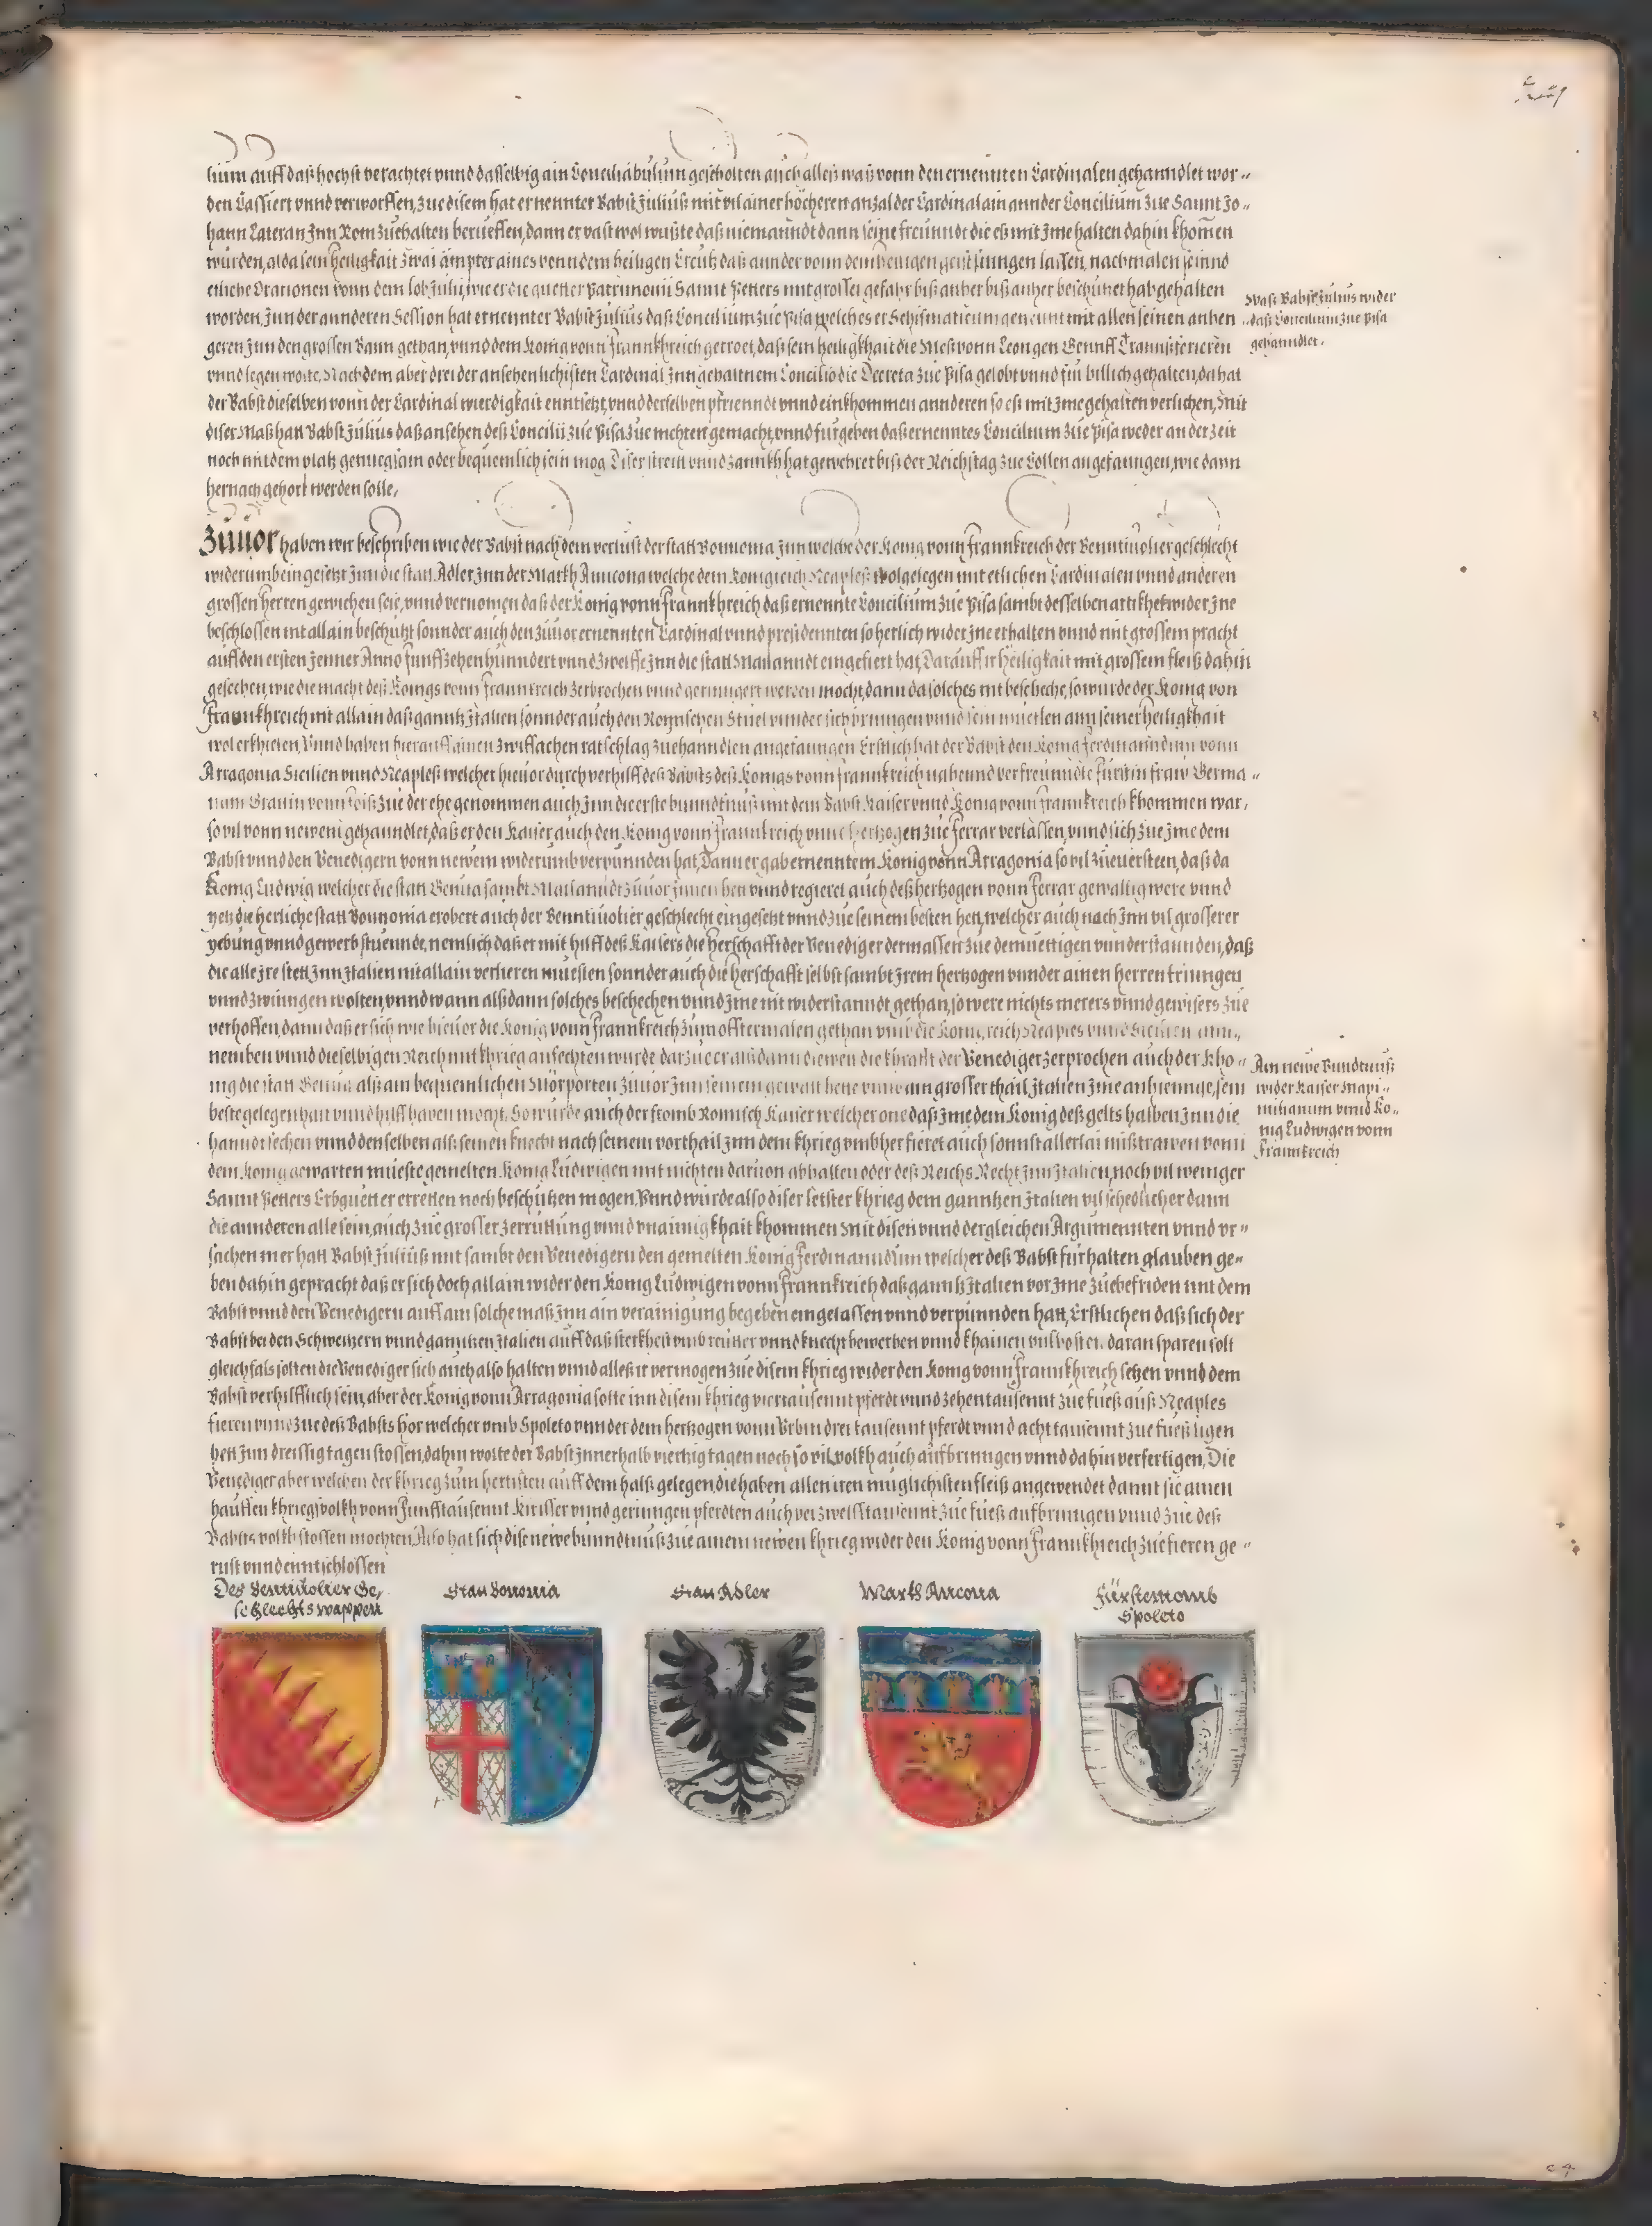 lium auff daß hochst verachtet vnnd dasselbig ain Conciliabulum gescholten auch alleß waß vonn den ernennten Cardinalen gehanndlet wor-
den Cassiert vnnd verworffen, zue disem hat ernennter Babst Julius mit vil ainer höcheren anzal der Cardinal ain annder Concilium zue Sannt Jo-
hann Lateran Jnn Rom zuehalten berueffen, dann er vast wol wußte daß niemanndt dann seine freunndt die eß mit Jme halten dahin khomen
wurden, alda sein heiligkait zwai ämpter aines vonn dem heiligen Creutz daß annder vonn dem heiligen geist singen lassen, nachmalen seinnd
etliche Orationen vonn dem lob Julij, wie er die guetter Patrimonii Sannt Petters mit grosser gefahr biß anher biß anher beschutzet hab gehalten
worden, Jnn der annderen Session hat ernennter Babst Julius daß Concilium zue Pisa welches er Schismaticum genennt mit allen seinen anhen-
geren Jnn den grossen Bann gethan, vnnd dem König vonn Frannkhreich getroet, daß sein heiligkhait die Meß vonn Leon gen Gennff Trannsferieren
vnnd legen wolte, Nachdem aber drei der ansehenlichisten Cardinäl Jnn gehaltnem Concilio die Decreta zue Pisa gelobt vnnd für billich gehalten, da hat
der Babst dieselben vonn der Cardinal wierdigkait enntsetzt, vnnd derselben pfrienndt vnnd einkhommen annderen so eß mit Jme gehalten verlichen, Mit
diser Maß hatt Babst Julius daß ansehen deß Concilii zue Pisa zue nichten gemacht, vnnd furgeben daß ernenntes Concilium zue Pisa weder an der zeit
noch mit dem platz genuegsam oder bequemlich sein mög Diser streitt vnnd zannkh hat gewehret biß der Reichstag zue Cöllen angefanngen, wie dann
hernach gehort werden solle,
Zuuor haben wir beschriben wie der Babst nach dem verlust der statt Bononia Jnn welche der König vonn Frannkreich der Benntiuolier geschlecht
widerumb eingesetzt Jnn die statt Adler Jnn der Markh Anncona welche dem Königreich Neapleß wolgelegen mit etlichen Cardinalen vnnd anderen
grossen herren gewichen seie, vnnd vernomen daß der König vonn Frannkhreich daß ernennte Concilium zue Pisa sambt desselben artikhel wider Jne
beschlossen nit allain beschützt sonnder auch den zuuor ernennten Cardinal vnnd presidennten so herlich wider Jne erhalten vnnd mit grossem pracht
auff den ersten Jenner Anno funffzehenhunndert vnnd zwelffe Jnn die statt Mailanndt eingefiert hat, Darauff ir heiligkait mit grossem fleiß dahin
gesechen, wie die macht deß Königs vonn Frannkreich zerbrochen vnnd geringert werden mocht, dann da solches nit bescheche, so wurde der König von
Frannkhreich nit allain daß ganntz Jtalien sonnder auch den Römischen Stuel vnnder sich bringen vnnd sein muetlen ann seiner heiligkhait
wol erkhielen, Vnnd haben hierauff ainen zwiffachen ratschlag zuehanndlen angefanngen Erstlich hat der Babst den König Ferdinanndum vonn
Arragonia Sicilien vnnd Neapleß welcher hieuor durch verhilff deß Babsts deß Königs vonn Frannkreich nahennd verfreunndte Fürstin fraw Germa-
nam Grauin vonn Foiß zue der ehe genommen auch Jnn die erste bunndtnuß mit dem Babst Kaiser vnnd König vonn Frannkreich khommen war,
so vil vonn newem gehanndlet, daß er den Kaiser auch den König vonn Frannkreich vnnd hertzogen zue Ferrar verlassen, vnnd sich zue Jme dem
Babst vnnd den Venedigern vonn newem widerumb verpunnden hat, Dann er gab ernenntem König vonn Arragonia so vil zueuersteen, daß da
König Ludwig welcher die statt Genua sambt Mailanndt zuuor Jnnen hett vnnd regieret auch deß hertzogen vonn Ferrar gewaltig were vnnd
yetz die herliche statt Bounonia erobert auch der Benntiuolier geschlecht eingesetzt vnnd zue seinem besten hett, welcher auch nach Jnn vil grosserer
yebung vnnd gewerb stuennde, nemlich daß er mit hilff deß Kaisers die herschafft der Venediger dermassen zue demuettigen vnnderstannden, daß
die alle Jre stett Jnn Jtalien nit allain verlieren muesten sonnder auch die herschafft selbst sambt Jrem hertzogen vnnder ainen herren tringen
vnnd zwingen wolten, vnnd wann alßdann solches beschechen vnnd Jme nit widerstanndt gethan, so were nichts merers vnnd gewisers zue
verhoffen, dann daß er sich wie hieuor die König vonn Frannkhreich zum offtermalen gethan vmb die Königreich Neaples vnnd Sicilien ann-
nemben vnnd dieselbigen Reich mit khrieg anfechten wurde darzue er alßdann dieweil die khrafft der Venediger zerprochen auch der Khö-
nig die statt Genua alß ain bequemlichen Mörporten zuuor Jnn seinem gewalt hette vnnd ain grosser thail Jtalien Jme anhiennge, sein
beste gelegenhait vnnd hilff haben mocht, So wurde auch der fromb Römisch Kaiser welcher one daß Jme dem König deß gelts halben Jnn die
hanndt sechen vnnd denselben alß seinen knecht nach seinem vorthail Jnn dem khrieg vmbher fieret auch sonnst allerlai mißtrawen vonn
dem König gewarten mueste gemelten König Ludwigen mit nichten daruon abhalten oder deß Reichs Recht Jnn Jtalien, noch vil weniger
Sannt Petters Erbguetter erretten noch beschutzen mögen, Vnnd wurde also diser letster khrieg dem ganntzen Jtalien vil schedlicher dann
die annderen alle sein, auch zue grosser zerruttung vnnd vnainigkhait khommen Mit disen vnnd dergleichen Argumennten vnnd vr-
sachen mer hatt Babst Julius mit sambt den Venedigern den gemelten König Ferdinanndum welcher deß Babst furhalten glauben ge-
ben dahin gepracht daß er sich doch allain wider den König Ludwigen vonn Frannkhreich daß ganntz Jtalien vor Jme zuebefriden mit dem
Babst vnnd den Venedigern auff ain solche maß Jnn ain verainigung begeben eingelassen vnnd verpunnden hatt, Erstlichen daß sich der
Babst bei den Schweitzern vnnd ganntzen Jtalien auff daß sterkhest vmb reutter vnnd knecht bewerben vnnd khainen vnkhosten daran sparen solt
gleichfals solten die Venediger sich auch also halten vnnd alleß ir vermogen zue disem khrieg wider den König vonn Frannkhreich setzen vnnd dem
Babst verhilfflich sein, aber der König vonn Arragonia solte inn disem khrieg viertausennt pferdt vnnd zehentausennt zue fueß auß Neaples
fieren vnnd zue deß Babsts hör welcher vmb Spoleto vnnder dem hertzogen vonn Vrbin drei tausennt pferdt vnnd acht tausennt zue fueß ligen
hett Jnn dreissig tagen stossen, dahin wolte der Babst Jnnerhalb viertzig tagen noch so vil volkh auch aufbringen vnnd dahin verfertigen, Die
Venediger aber welchen der khrieg zum hertisten auff dem halß gelegen, die haben allen iren muglichisten fleiß angewendet damit sie ainen
hauffen khriegsvolkh vonn funfftausennt Kirisser vnnd geringen pferdten auch bei zwelfftausennt zue fueß aufbringen vnnd zue deß
Babsts volkh stossen mochten, Also hat sich dise newe bunndtnuß zue ainem newen khrieg wider den König vonn Frannkhreich zue fieren ge-
rust vnnd enntschlossen
Waß Babst Julius wider
daß Concilium zue Pisa
gehanndlet.
Ain newe Bundtnuß
wider Kaiser Maxi-
milianum vnnd Kö-
nig Ludwigen vonn
Frannkreich
Der Bentiuolier Ge-
schlechts wappen
Statt Bononia
Statt Adler
Markh Ancona
Fürstentomb
Spoleto